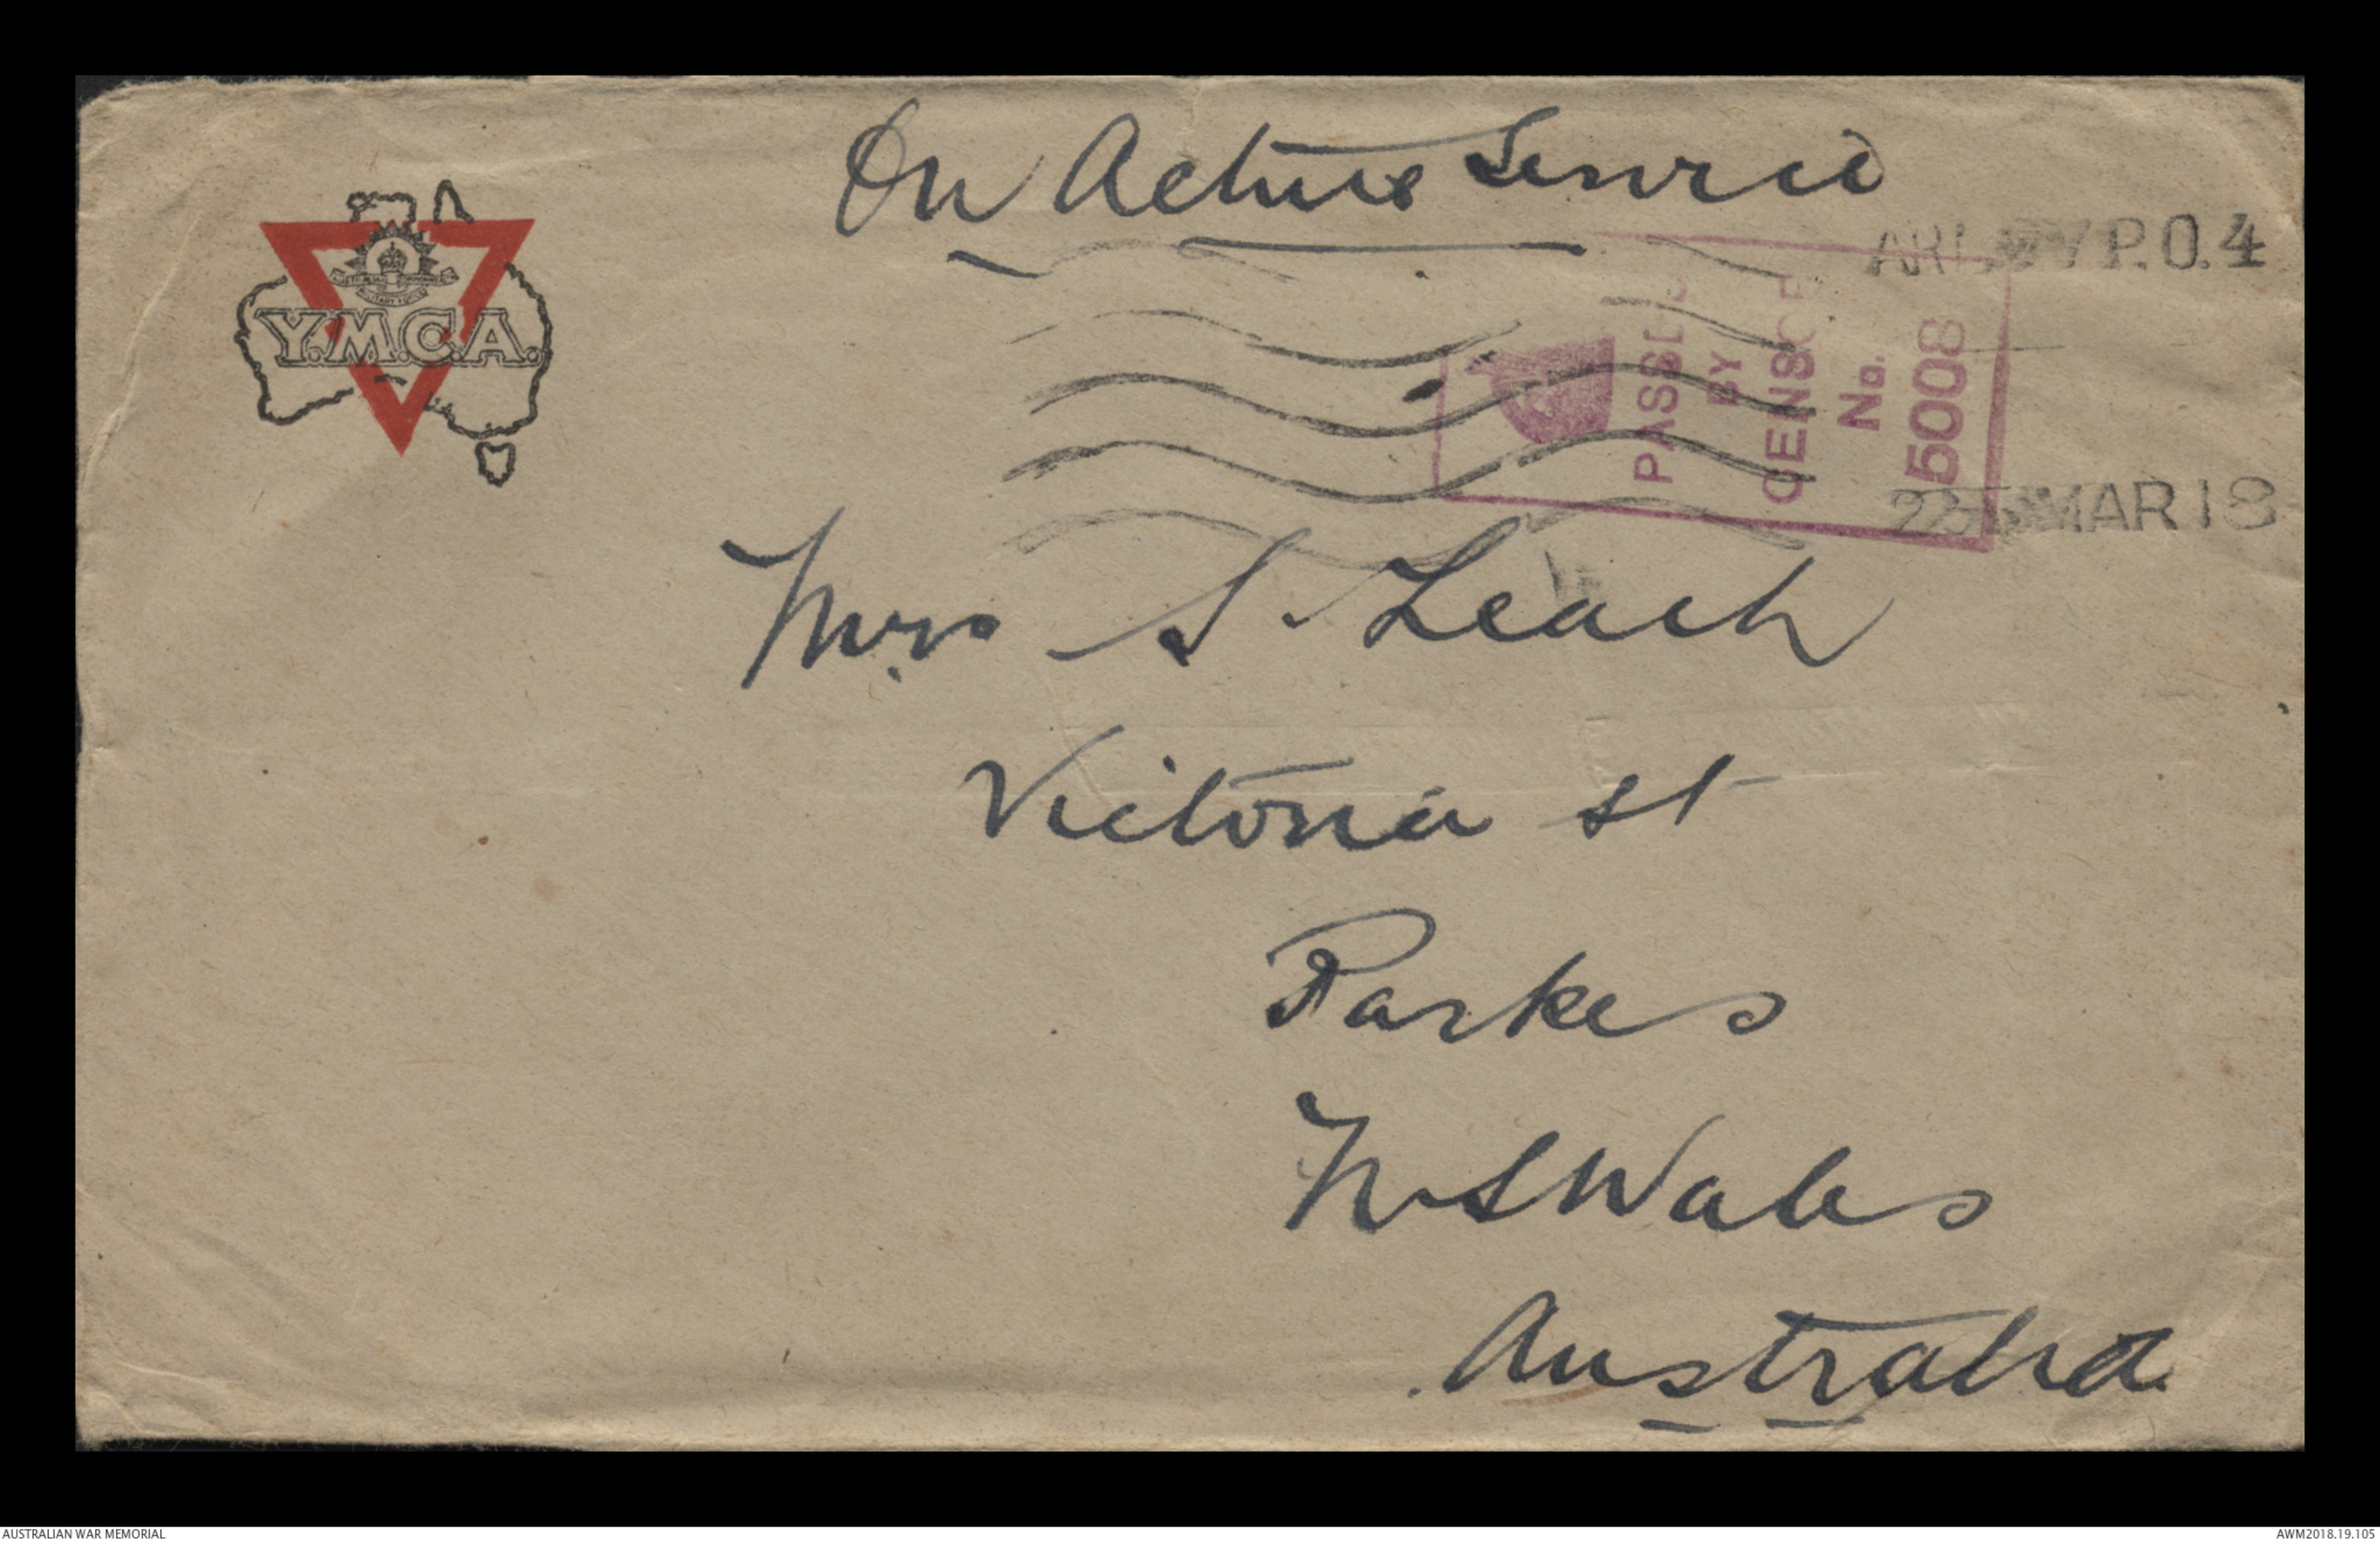 On Active Service
ARMY P.O. 4
AUSTRALIAN COMMONWEALTH
MILITARY FORCES
Y.M.C.A.
PASSED
BY
CENSOR
No.
5008
MAR 18
Mrs S. Leach
Victoria st
Parkes
N S Wales
Australia
AUSTRALIAN WAR MEMORIAL
AWM2018.19.105